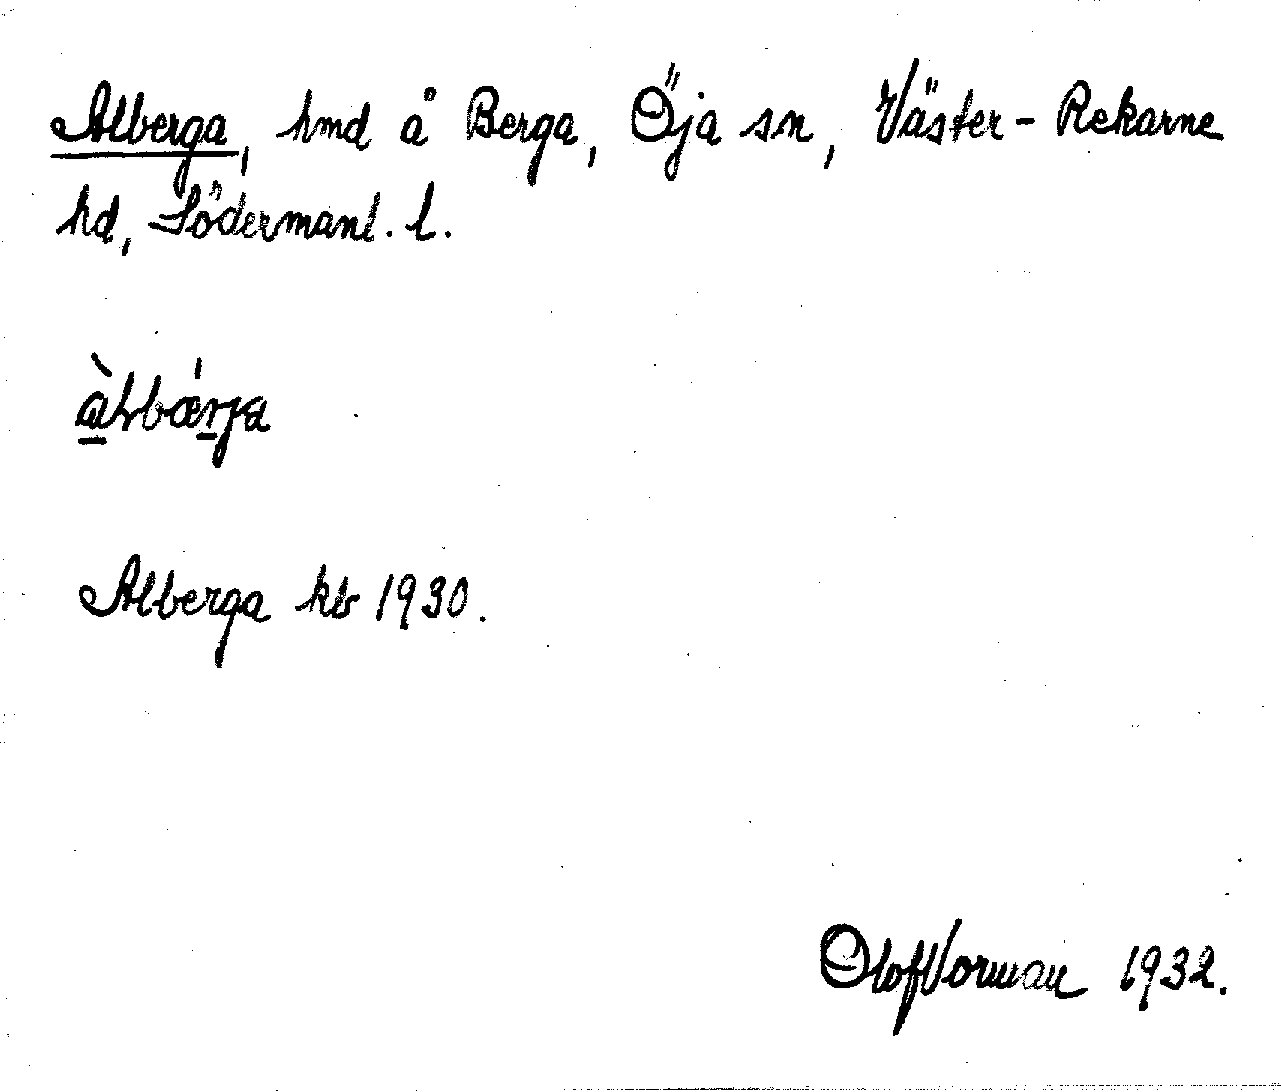 Alberga, hmd å Berga, Öja sn, Väster-Rekarne
hd, Södermanl. l.
Alberga kb 1930.
Olof Vorman 1932.